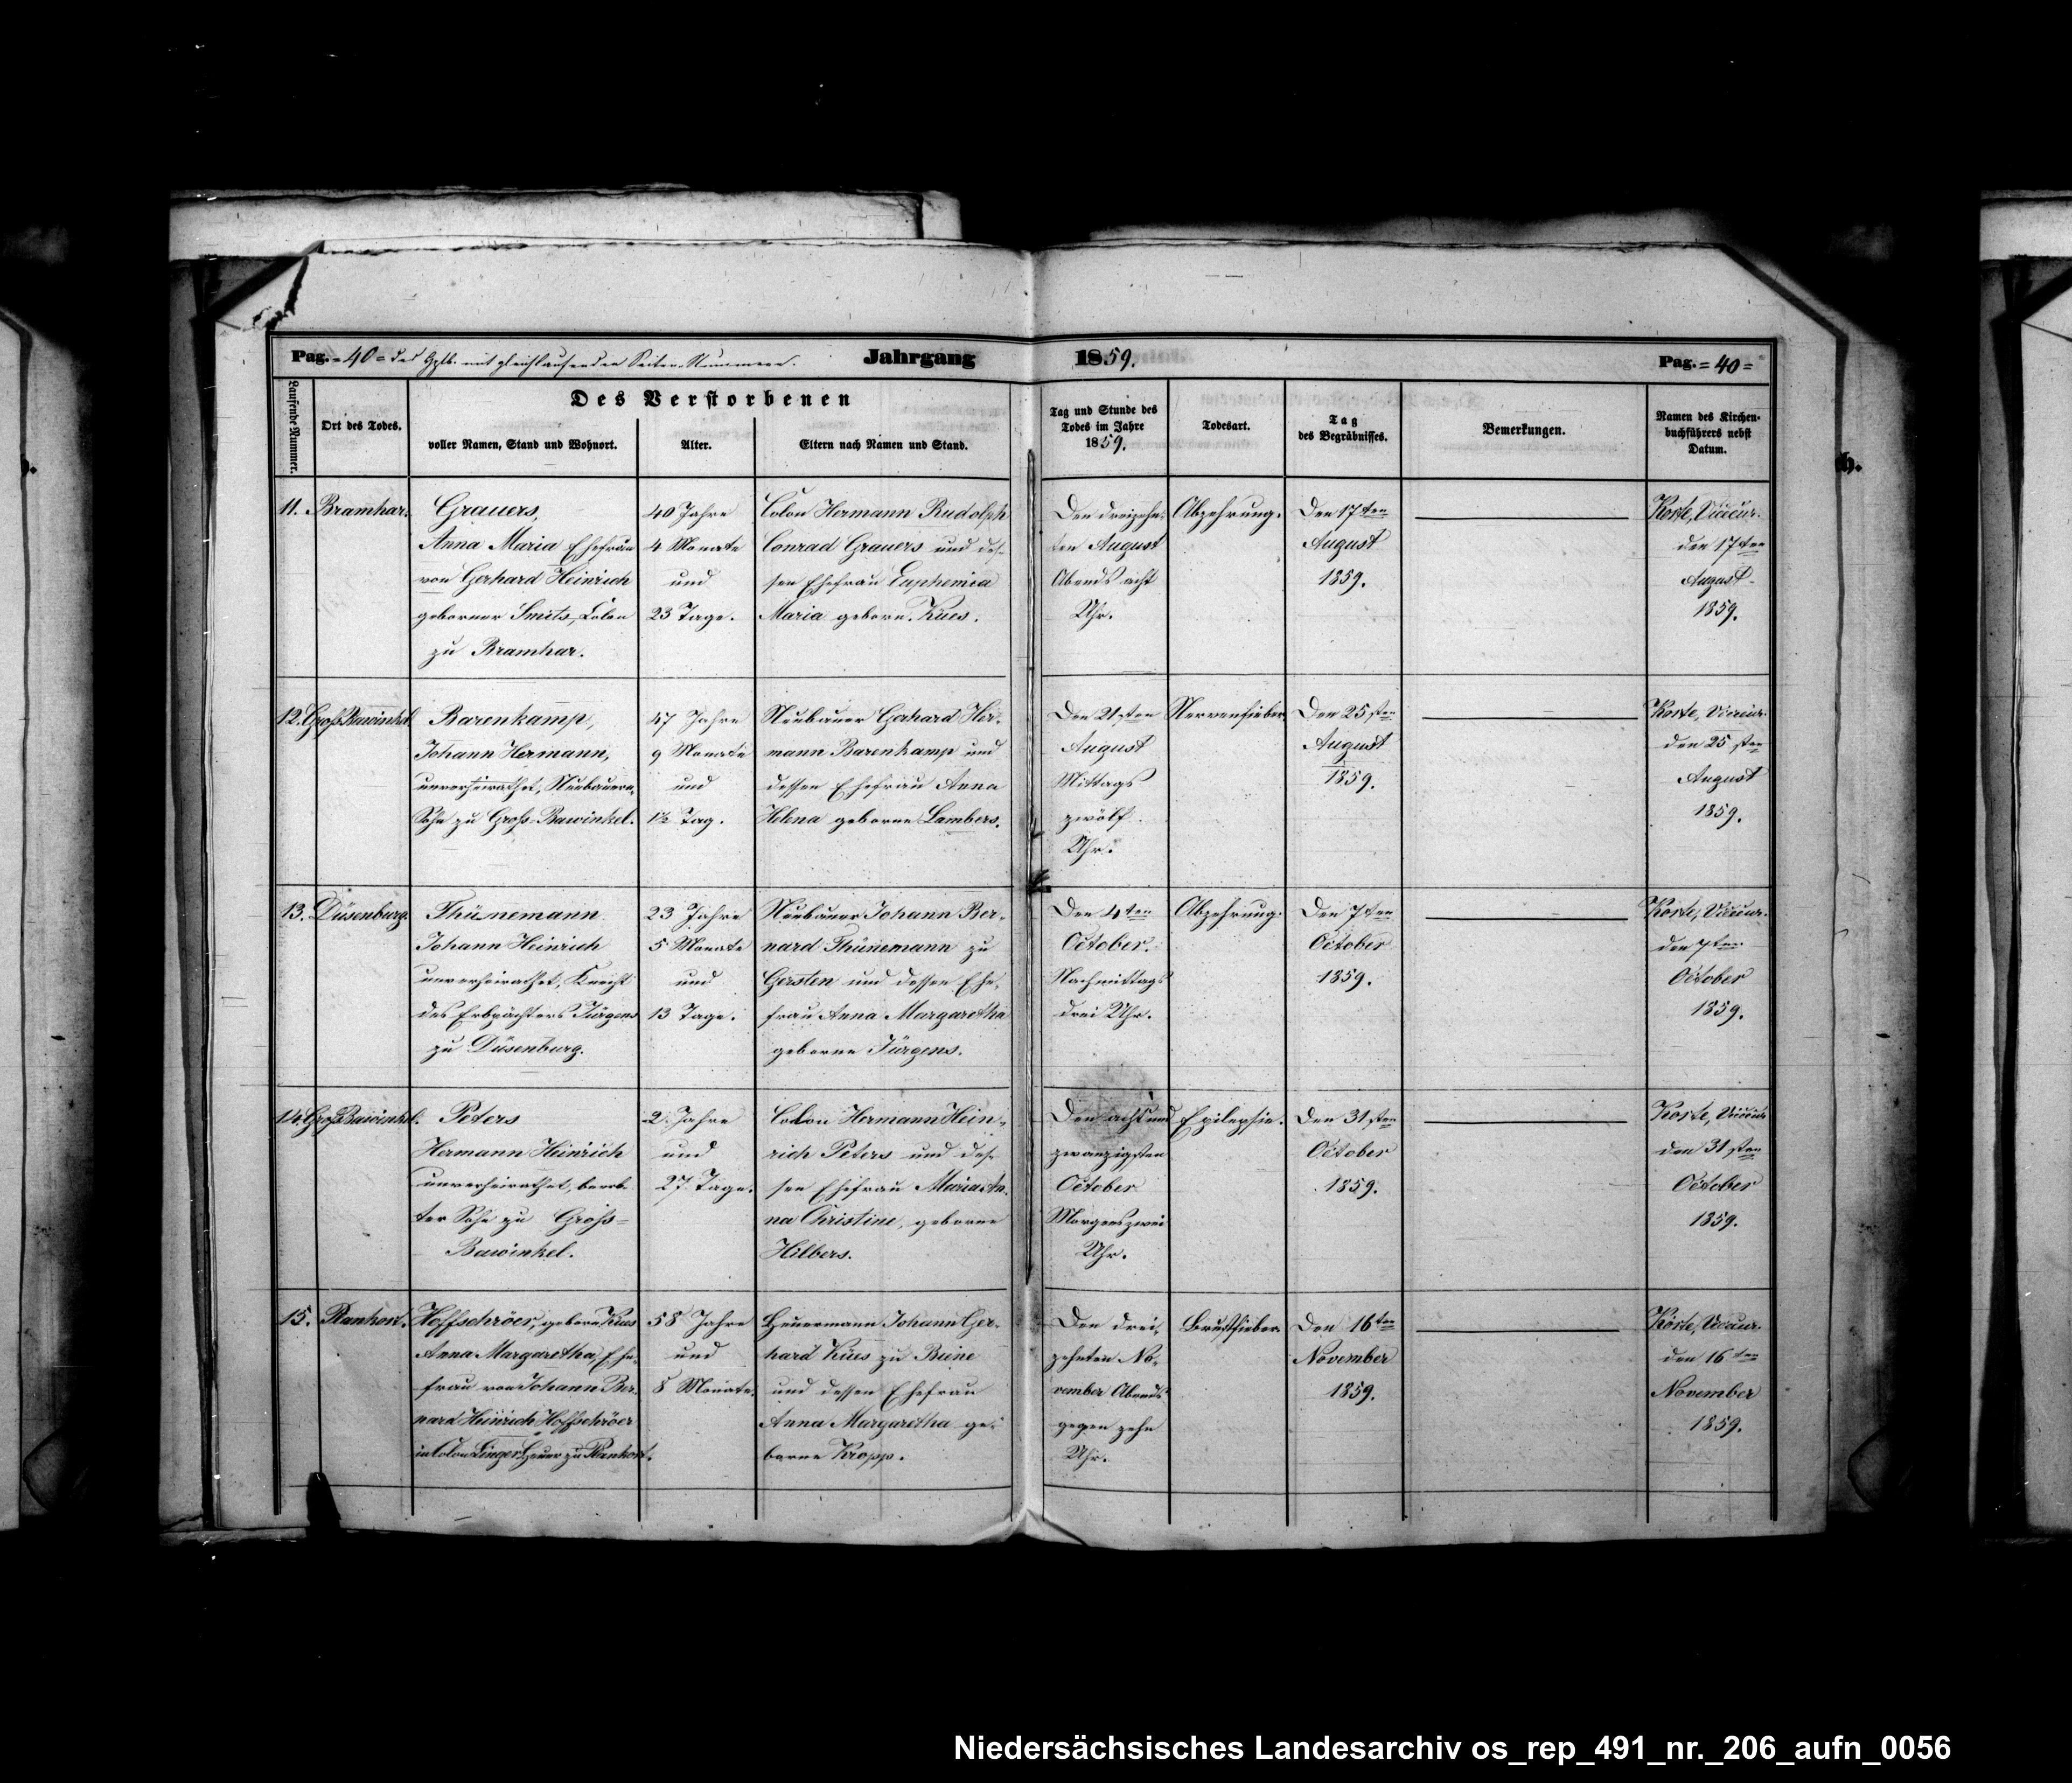 Pag. = 40 = des Hptb. mit gleichlaufenden Seiten-Nummern. Jahrgang 1859. Pag. = 40 =
Laufende Nummer.
Ort des Todes.
Des Verstorbenen
voller Namen, Stand und Wohnort.
Alter.
Eltern nach Namen und Stand.
Tag und Stunde des
Todes im Jahre
1859.
Todesart.
Tag
des Begräbnisses.
Bemerkungen.
Namen des Kirchen-
buchführers nebst
Datum.
11.
Bramhar.
Grauers,
Anna Maria Ehefrau
von Gerhard Heinrich
geborner Smits, Colon
zu Bramhar.
40 Jahre
4 Monate
und
23 Tage.
Colon Hermann Rudolph
Conrad Grauers und des-
sen Ehefrau Euphemia
Maria geborn. Kües.
Den dreizehn-
ten August
Abends acht
Uhr.
Abzehrung.
Den 17ten
August
1859.
Korte, Vicecur.
den 17ten
August
1859.
12.
Groß Bawinkel.
Barenkamp,
Johann Hermann,
unverheirathet, Neubauern-
Sohn zu Groß-Bawinkel.
47 Jahre
9 Monate
und
1½ Tag.
Neubauer Gerhard Her-
mann Barenkamp und
dessen Ehefrau Anna
Helena geborne Lambers.
Den 21sten
August
Mittags
zwölf
Uhr.
Nervenfieber.
Den 25sten
August
1859.
Korte, Vicecur.
den 25sten
August
1859.
13.
Düsenburg.
Thünemann
Johann Heinrich
unverheirathet, Knecht
des Erbpächters Jürgens
zu Düsenburg.
23 Jahre
5 Monate
und
13 Tage.
Neubauer Johann Ber-
nard Thünemann zu
Gersten und dessen Ehe-
frau Anna Margaretha
geborne Jürgens.
Den 4ten
October.
Nachmittags
drei Uhr.
Abzehrung.
Den 7ten
October
1859.
Korte, Vicecur.
den 7ten
October
1859.
14.
Groß Bawinkel.
Peters
Hermann Heinrich
unverheirathet, beerb-
ter Sohn zu Groß-
Bawinkel.
2. Jahre
und
27 Tage.
Colon Hermann Hein-
rich Peters und des-
sen Ehefrau Maria An-
na Christine, geborne
Hilbers.
Den acht und
zwanzigsten
October
Morgens zwei
Uhr.
Epilepsie.
Den 31sten
October
1859.
Korte, Vicecur.
den 31sten
October
1859.
15.
Plankort.
Hoffschröer, geborn Kues
Anna Margaretha, Ehe-
frau von Johann Ber-
nard Heinrich Hoffschröer
in Colon Linger Heuer zu Plankort.
58 Jahre
und
8 Monate.
Heuermann Johann Ger-
hard Kües zu Biene
und dessen Ehefrau
Anna Margaretha ge-
borne Kropp.
Den drei-
zehnten No-
vember Abends
gegen zehn
Uhr.
Brustfieber.
Den 16ten
November
1859.
Korte, Vicecur.
den 16ten
November
1859.
Niedersächsisches Landesarchiv os_rep_491_nr._206_aufn_0056